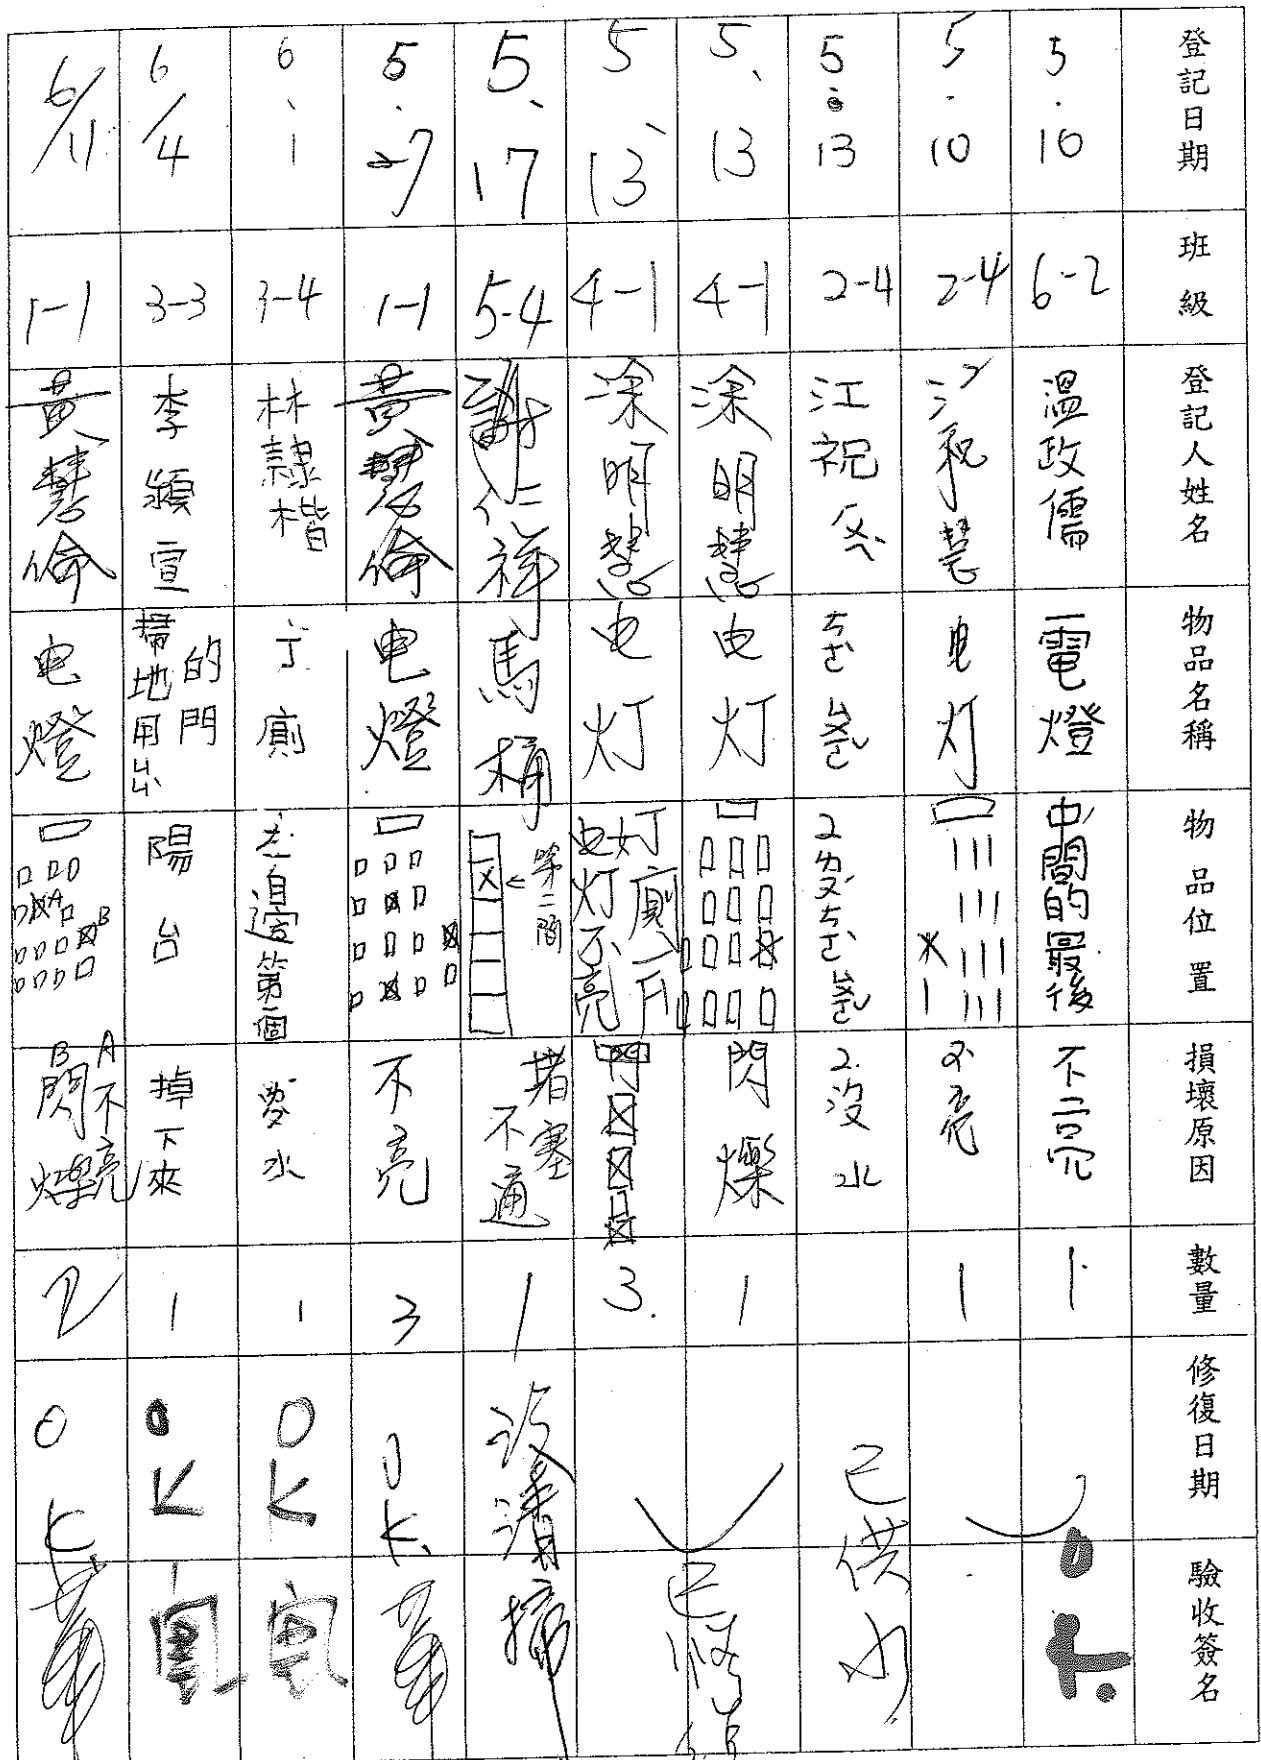 登記日期
班級
登記人姓名
物品名稱
物品位置
損壞原因
數量
修復日期
驗收簽名
5.10
6-2
溫政儒
電燈
中間的最後
不亮
1
O
K.
5.10
2-4
电灯
不亮
1
5.13
2-4
江祝
2.沒水
已供水
5、13
4-1
涂明慧
电灯
閃爍
1
5、13
4-1
涂明慧
电灯
电灯不亮
女廁
3.
已修
5、17
5-4
謝仁祥
馬桶
←第二間
堵塞不通
1
清掃
5.27
1-1
黃慧倫
电燈
不亮
3
OK.
6、1
3-4
林隸楷
廁
邊第一個
水
1
OK
6/4
3-3
李穎宣
掃地用ㄐㄩˋ
的門
陽台
掉下來
1
OK
6/11
1-1
黃慧倫
电燈
A
B
A不亮
B閃爍
2
OK